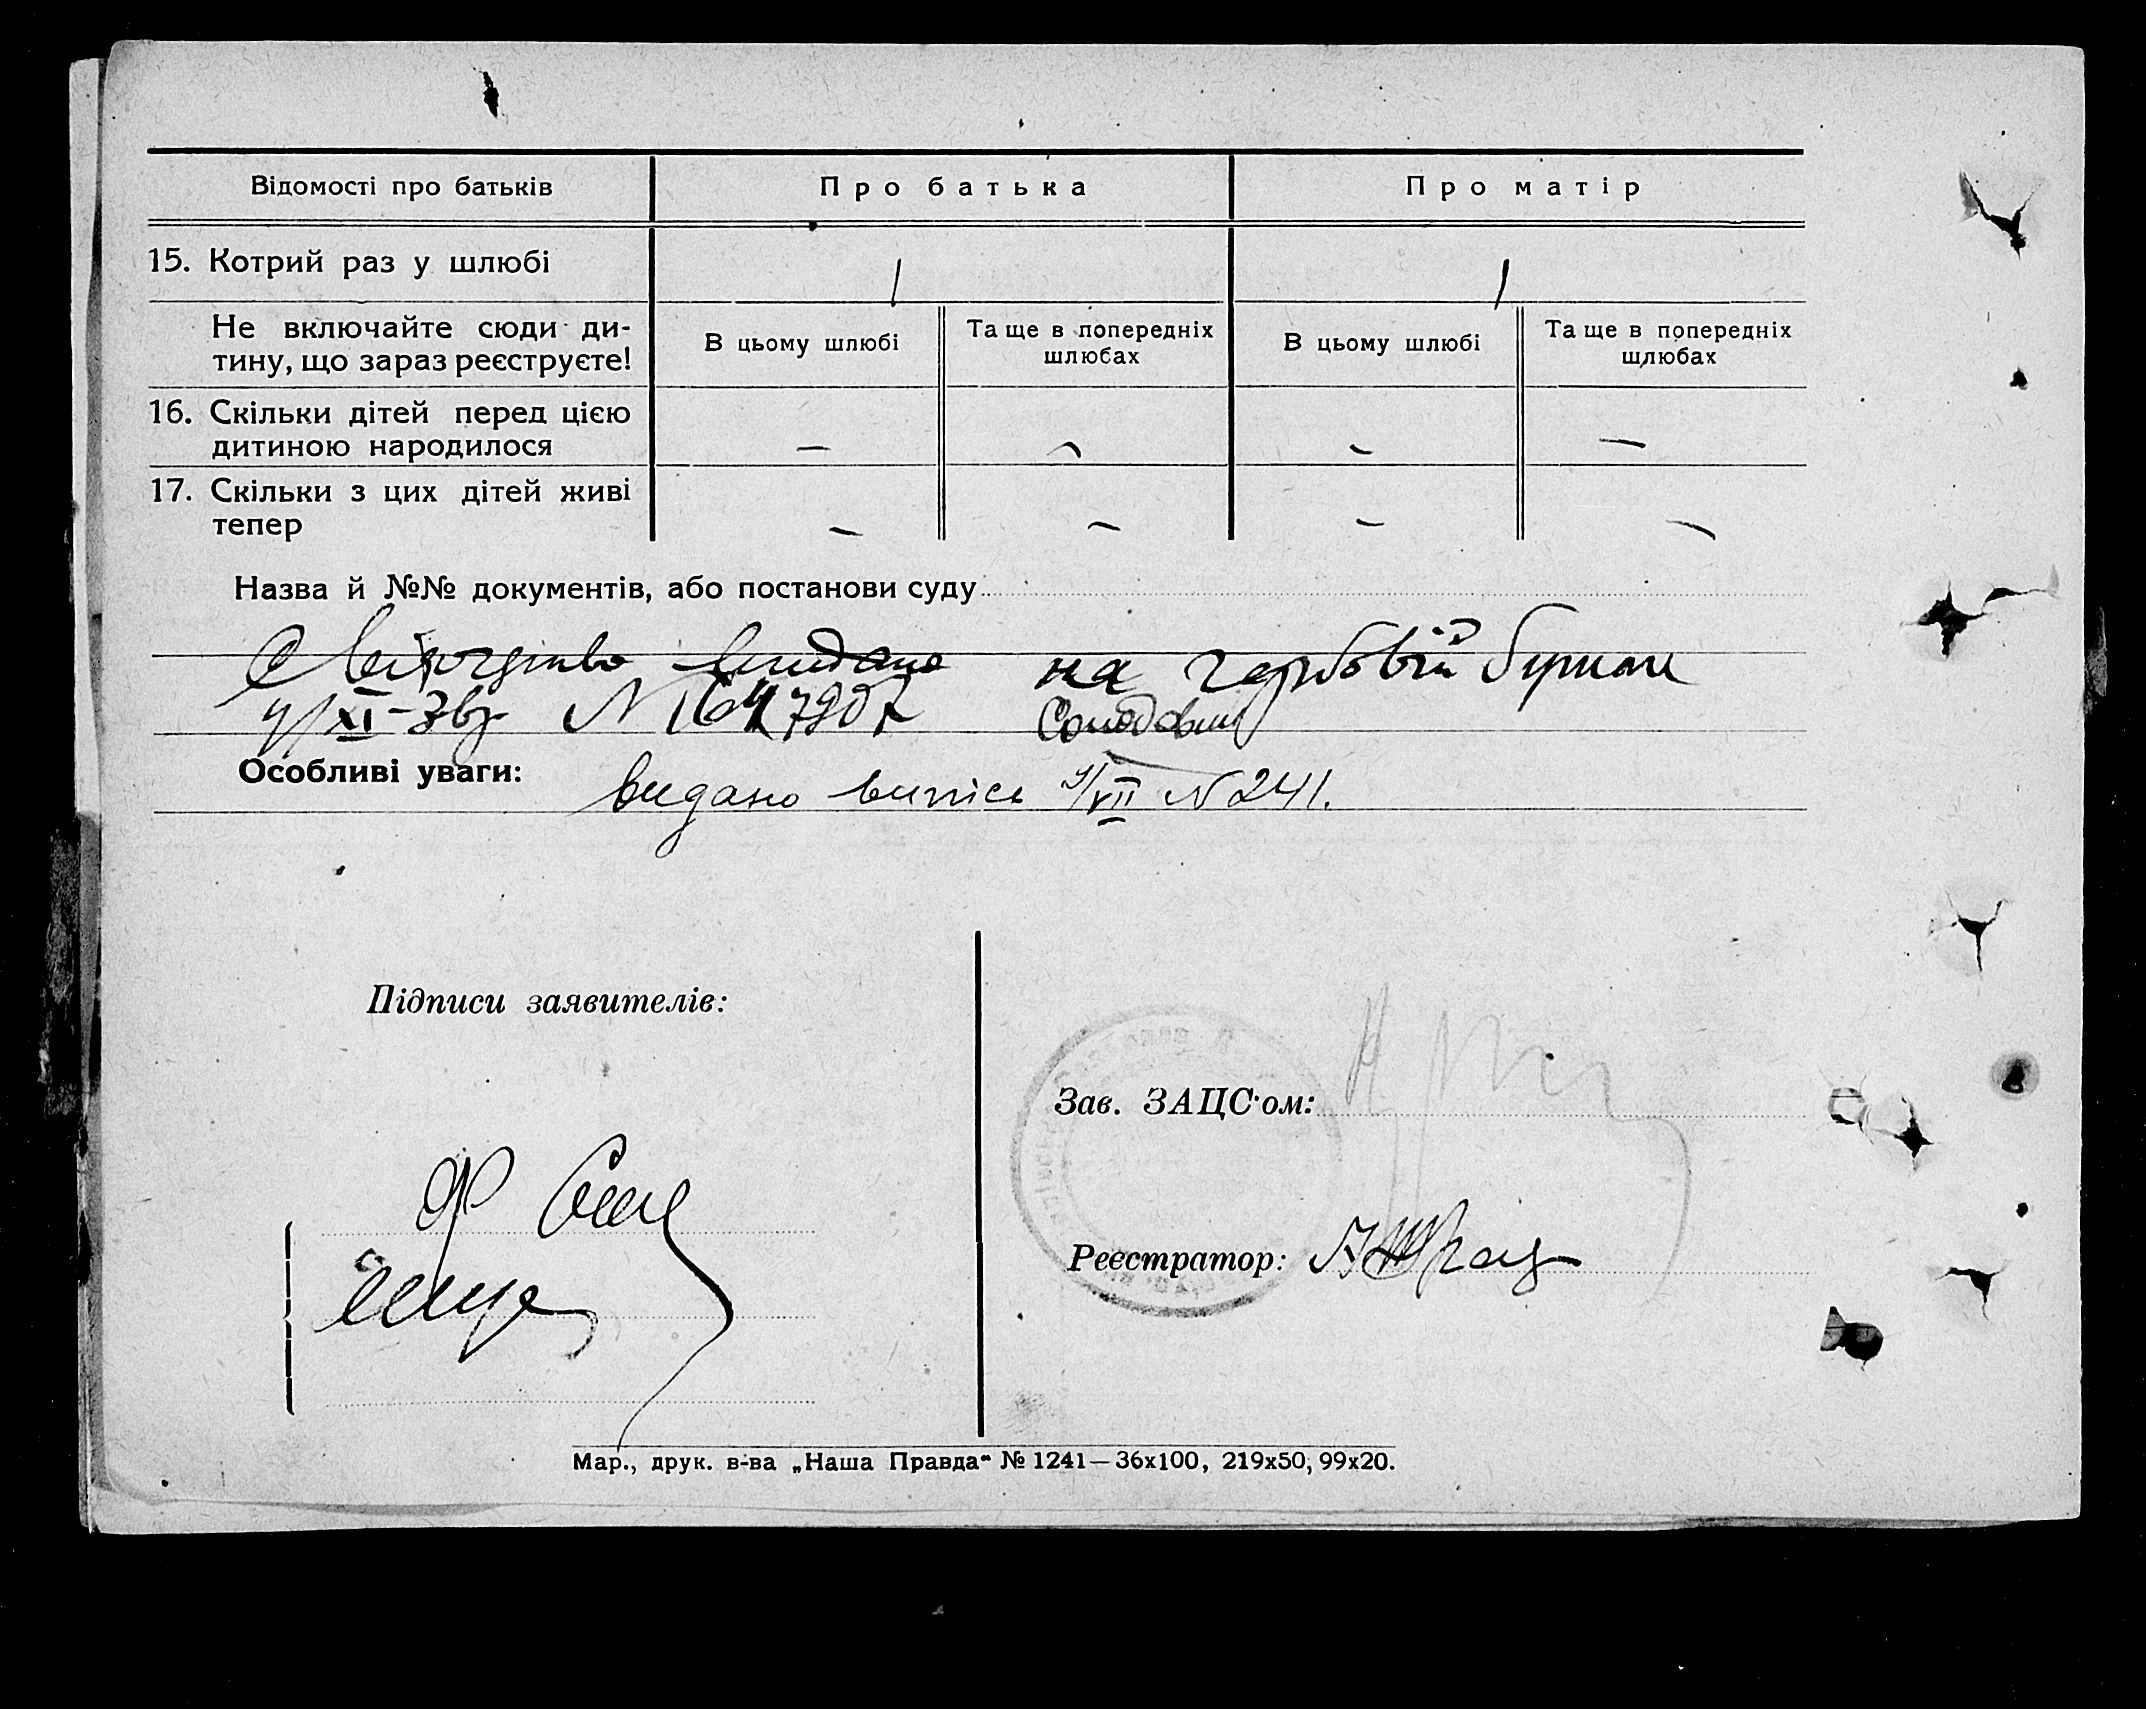 Відомості про батьків
Про батька
Про матір
15. Котрий раз у шлюбі
1
1
Не включайте сюди ди-
тину, що зараз реєструєте!
В цьому шлюбі
Та ще в попередніх
шлюбах
В цьому шлюбі
Та ще в попередніх
шлюбах
16. Скільки дітей перед цією
дитиною народилося
–
–
–
–
17. Скільки з цих дітей живі
тепер
–
–
–
–
Назва й №№ документів, або постанови суду
видано на гербовій
Особливі уваги:
видано випис VII N 241.
Підписи заявителів:
Зав. ЗАЦС'ом:
Реєстратор:
Мар., друк. в-ва „Наша Правда" № 1241—36х100, 219х50, 99х20.